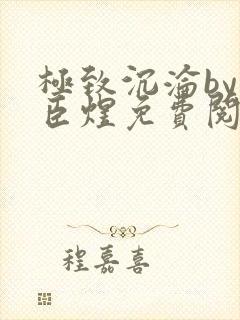 極致沉淪by
臣煌免費閱
程嘉喜